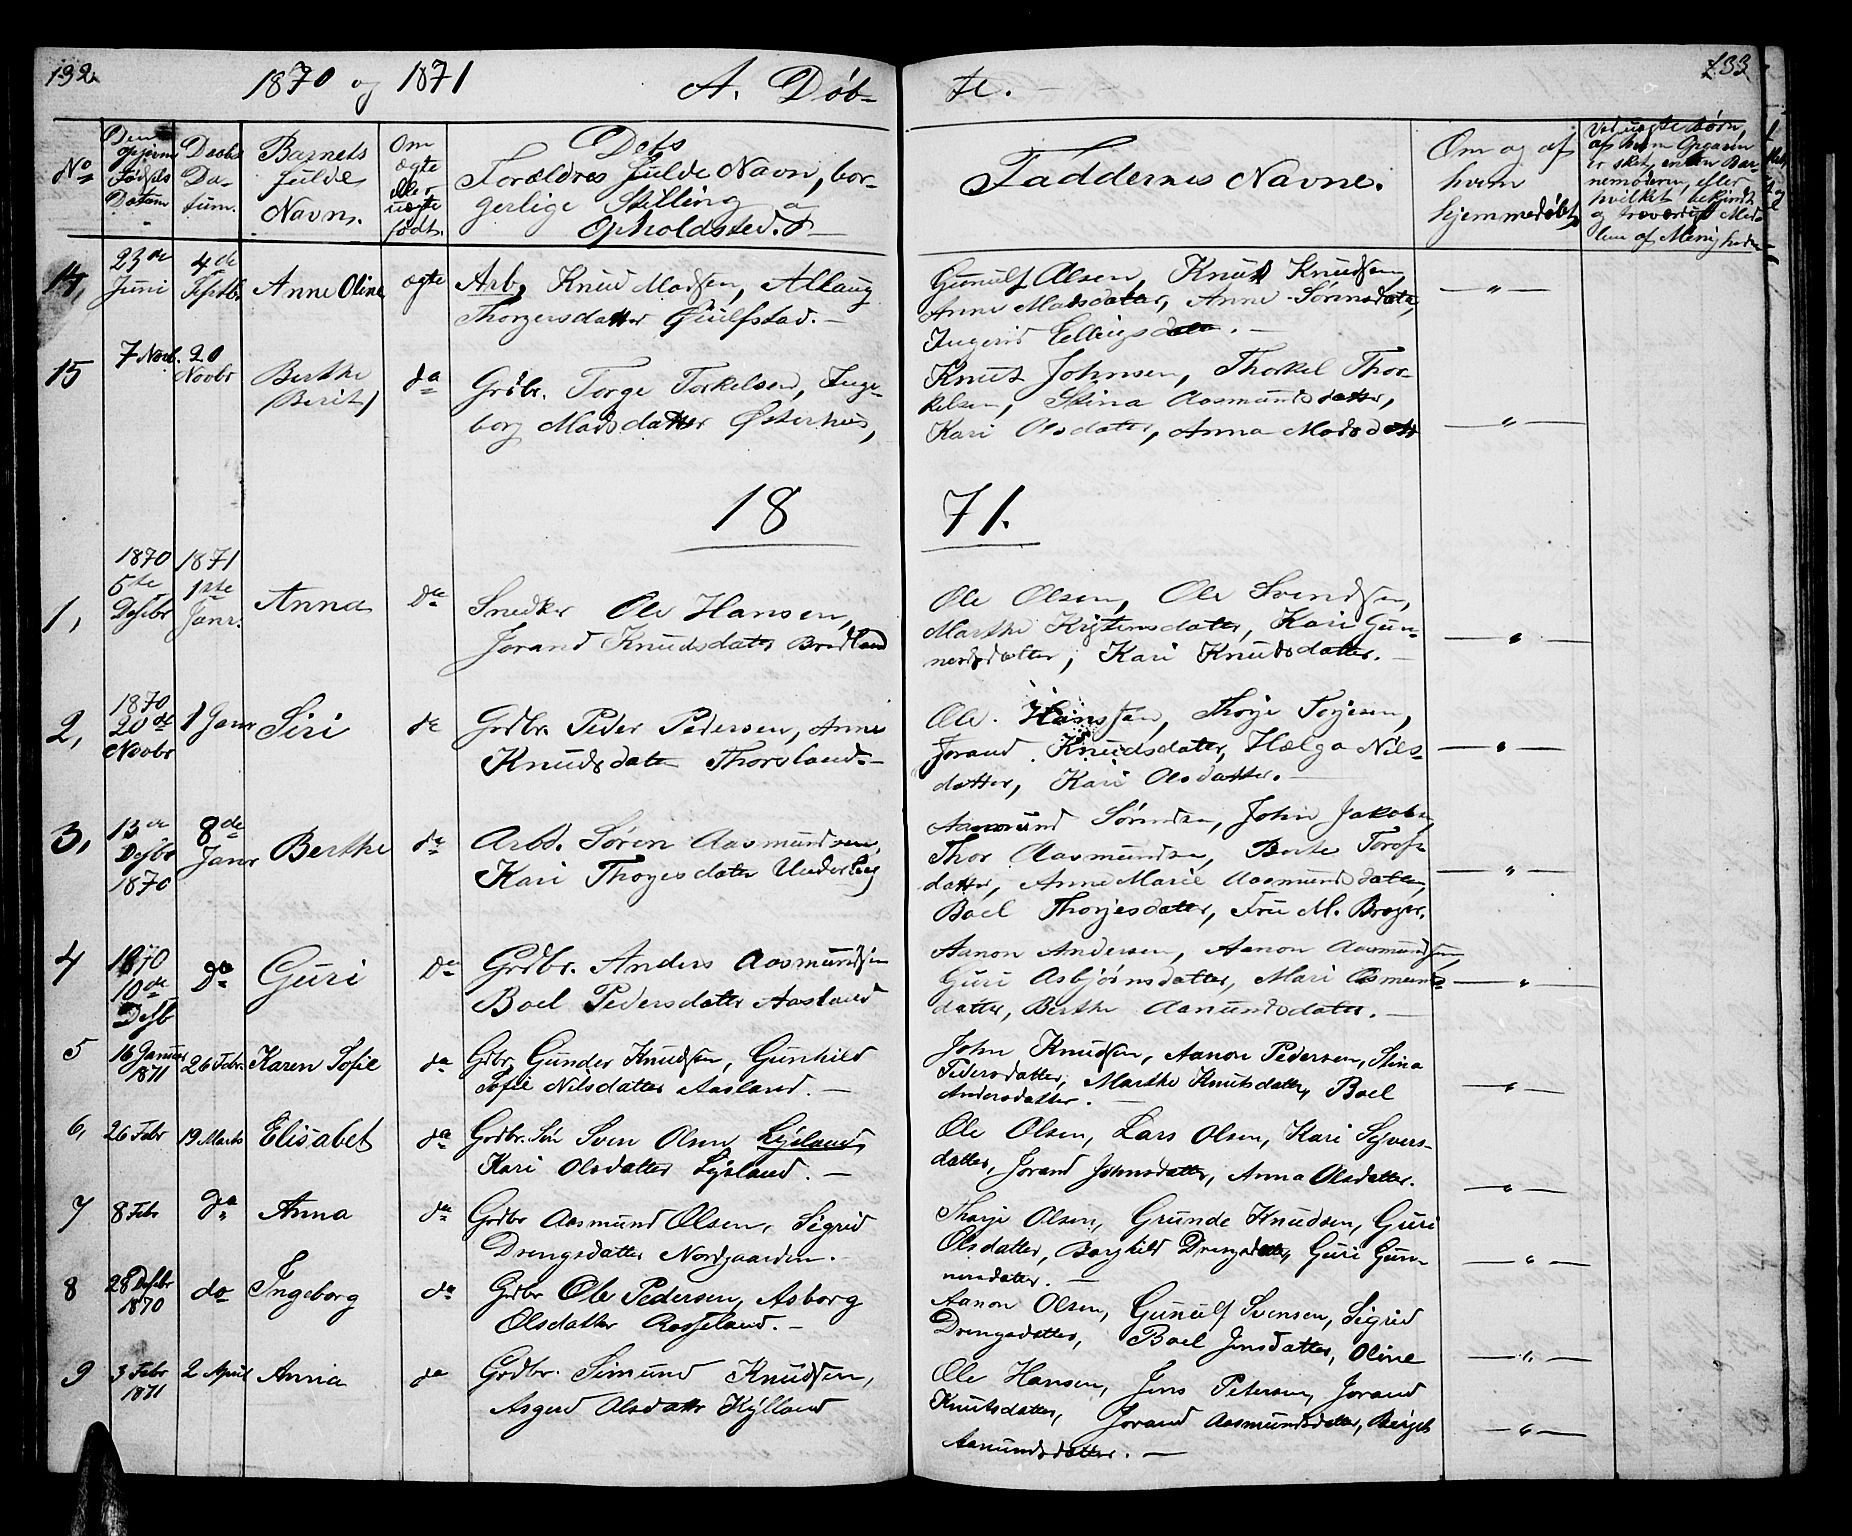 132
1870 og 1871
A. Døb-
te.
133
No
Fødsels
Datum
Daabs
Da-
tum.
Barnets
fulde
Navn.
Om
ægte
eller
uægte
født.
Dets
Forældres fulde Navn, bor-
gerlige Stilling
Opholdsted.
Faddernes Navne.
Om og af
hvem
hjemmedøbt,
Ved uægte Børn,
af hvem Opgaven
er sket, enten Bar-
nemoderen, eller
hvilket bekjendt
og troværdigt Med-
lem af Menigheden
14,
23de
Juni
4de
Septbr
Anne Oline
ægte
Arb. Knud Madsen, Allaug
Thorgersdatter
Gunulf Olsen, Knud Knudsen,
Anne Madsdatter, Anne Sørensdatr,
Ingerid Ellingsdatr. —
— " —
15
7 Novb.
20
Novbr
Berthe
(Berit)
da
Grdbr. Torge Torkelsen, Inge-
borg Madsdatter Østerhus,
Knut Johnsen, Thorkel Thor-
kelsen, Stina Aasmundsdatter,
Kari Olsdatter, Anna Madsdatr
— " —
1871.
1,
1870
5te
Desbr
1871
1ste
Janr.
Anna
Da
Snedker Ole Hansen,
Jorand Knudsdater Bredland
Ole Olsen, Ole Svendsen,
Marthe Kristensdatter, Kari Gun-
nersdatter, Kari Knudsdatter. —
— " —
2,
1870
20de
Novbr
1 Janr
Siri
da
Grdbr. Peder Pedersen, Anne
Knudsdater Thorsland. —
Ole Hansen, Thorje Torjesen,
Jorand Knudsdatter, Helga Nils-
datter, Kari Olsdatter. —
— " —
3,
13de
Desbr
1870
8de
Janr
Berthe
da
Arbd. Søren Aasmundsen,
Kari Thorjesdater
Aasmund Sørensen, John Jakobs.,
Thor Aasmundsen,
datter, Anne Marie Aasmundsdatter,
Boel Thorjesdatter, Fru M.
— " —
4
1870
10de
Desb
Da
Guri
Da
Grdbr. Anders Aasmundsen
Boel Pedersdatter Aasland
Aanon Andersen, Aanon Aasmundsen,
Guri Asbjørnsdatter, Mari Osmunds-
datter, Berthe Aanundsdater. —
— " —
5
16 Januar
1871
26 Febr.
Karen Sofie
da
Grdbr. Gunder Knudsen, Gunhild
Sofie Nilsdatter Aasland. —
John Knudsen, Aanon Pedersen, Stina
Pedersdatter, Marthe Knutsdatter, Boel
Andersdatter. —
— " —
6,
26 Febr
19 Marts
Elisabet
da
Grdbr. Søn Sven Olsen Lysland,
Kari Olsdatter Lysland. —
Ole Olsen, Lars Olsen, Kari Syvers-
datter, Jorand Johnsdatter, Anna Olsdatter.
— " —
7
8 Febr
da
Anna
da
Grdbr Aasmund Olsen, Sigrid
Drengsdatter Nordgaarden. —
Thorje Olsen, Grunde Knudsen, Guri
Olsdatter, Borghild Drengsdatter, Guri Gun-
nersdatter. —
— " —
8
28 Desbr
1870
do
Ingeborg
da
Grdbr Ole Pedersen, Asborg
Olsdatter Rosseland. —
Aanon Olsen, Gunulf Svensen, Sigrid
Drengsdatter, Boel Jensdatter, Oline
— " —
9
3 Febr
1871
2 April
Anna
da
Grdbr. Simund Knudsen,
Asgerd Olsdattr Kylland
Ole Hansen, Jens Petersen, Jorand
Knutsdatter, Jorand Aasmundsdatter, Berget
Aanundsdatter. —
— " —